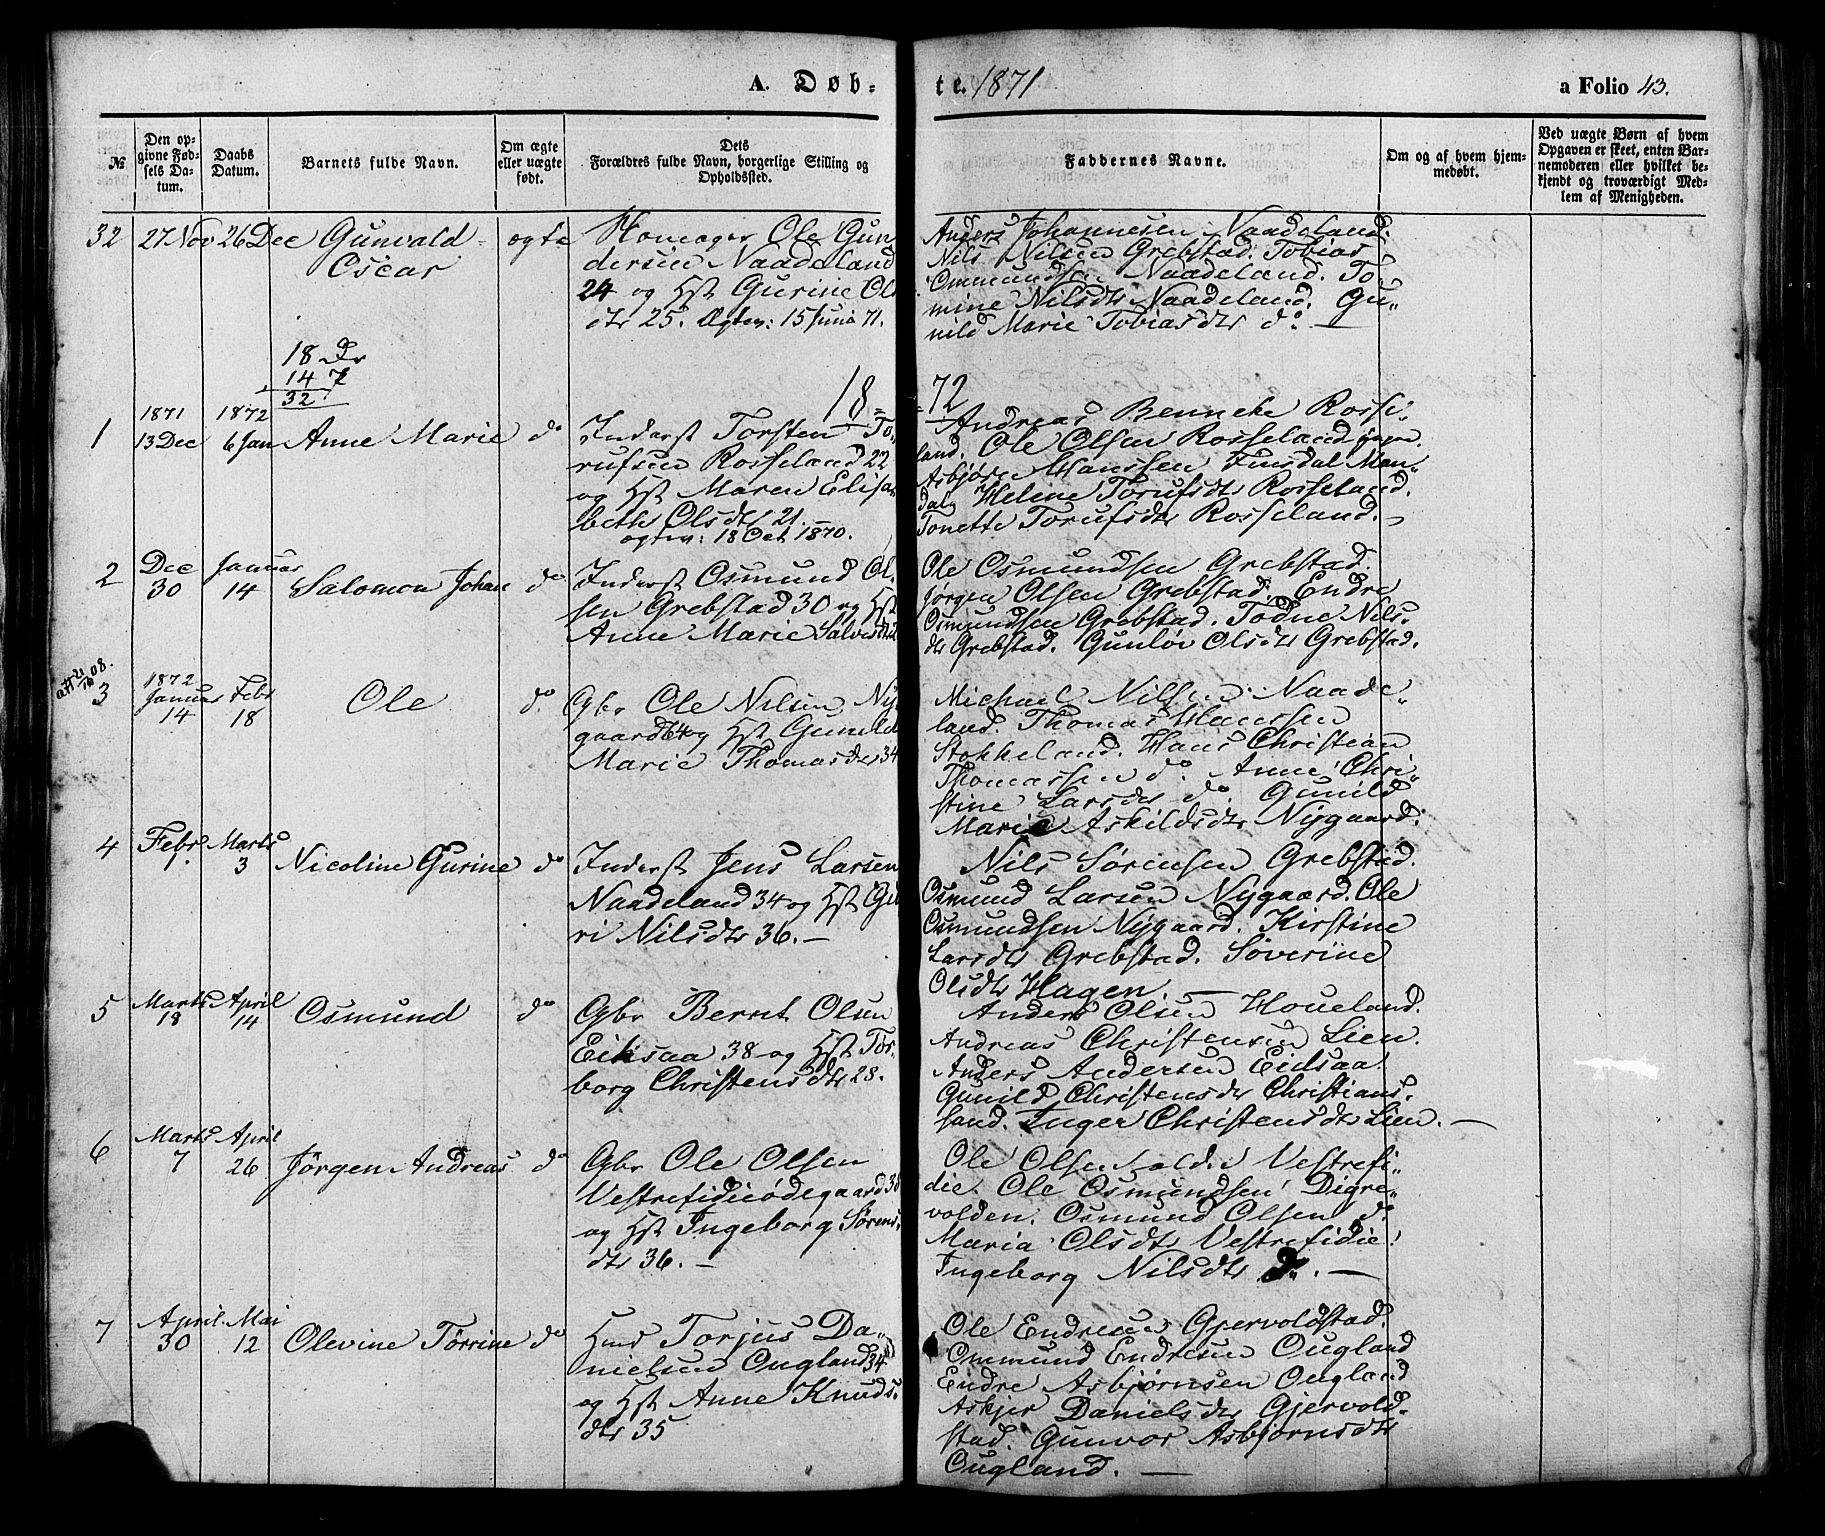 A. Døb-
te. 1871
a Folio 43.
№
Den op-
givne Fød-
sels Da-
tum.
Daabs
Datum.
Barnets fulde Navn.
Om ægte
eller uægte
født.
Dets
Forældres fulde Navn, borgerlige Stilling og
Opholdssted.
Faddernes Navne.
Om og af hvem hjem-
medøbt.
Ved uægte Børn af hvem
Opgaven er skeet, enten Bar-
nemoderen eller hvilket be-
kjendt og troværdigt Med-
lem af Menigheden.
32 27 Nov 26 Dec Gunvald
Oscar
ægte
Ole Gun
dersen Naadeland
24 og Hst Gurine Ols
dtr 25. Ægtev: 15 Juni 71.
Anders Johannesen Naadeland.
Nils Nilsen Grebstad. Tobias
Ommundsen Naadeland. To
mine Nilsdtr Naadeland. Gu-
nild Marie Tobiasdtr do. —
18 Dr
14 P
32
18-
-72
1 1871 13 Dec 1872 6 Jan Anne Marie do
Inderst Torsten To-
rufsen Rosseland 22
og Hst Maren Elisa
beth Olsdtr 21
ægtev: 18 Oct 1870.
Andreas Benneke Rosse-
land. Ole Olsen Rosseland yngre.
Asbjørn Hanssen Finsdal Man-
dal, Helene Torufsdtr Rosseland.
Tonette Torufsdtr Rosseland. —
2 Dec 30 Januar 14 Salomon Johan do
Inderst Osmund Ol-
sen Grebstad 30 og Hst
Anne Marie Salvesdtr
Ole Osmundsen Grebstad.
Jørgen Olsen Grebstad. Endre
Osmundsen Grebstad. Todne Nils-
dtr Grebstad. Gunløv Olsdtr Grebstad.
08.
3 1872 Januar 14 Febr 18 Ole do.
Gbr Ole Nilsen Ny
gaard 64 og Hst Gunild
Marie Thomasdtr 34
Michael Nilsen Naade-
land. Thomas Hanssen
Stokkeland. Hans Christian
Thomassen do. Anne Chri-
stine Larsdtr do. Gunild
Marie Askildsdtr Nygaard.
4 Febr 1. Marts 3 Nicoline Gurine do
Inderst Jens Larsen
Naadeland 34 og Hst Gu
ri Nilsdtr 36. —
Nils Sørensen Grebstad.
Osmund Larsen Nygaard. Ole
Osmundsen Nygaard. Kirstine
Larsdtr Grebstad. Søverine
Olsdtr Hagen. —
5 Marts 18 April 14 Osmund do
Gbr Bernt Olsen
Eidsaa 38 og Hst Tor-
borg Christensdtr 28.
Anders Olsen Houeland.
Andreas Christensen Lien.
Anders Andersen Eidsaa.
Gunild Christensdtr Christians-
sand. Inger Christensdtr Lien. —
6 Marts 7 April 26 Jørgen Andreas do
Gbr Ole Olsen
Vestrefidieødegaard 38
og Hst Ingeborg Sørens-
dtr 36. —
Ole Olsen Vestrefi-
die. Ole Osmundsen Digre-
volden. Osmund Olsen do.
Maria Olsdtr Vestrefidie.
Ingeborg Nilsdtr do. —
7 April 30 Mai 12 Olevine Tørrine do
Hmd Torjus Da-
nielsen Ougland 34
og Hst Anne Knuds-
dtr 35
Ole Endresen Gjervoldstad.
Ommund Endresen Ougland
Endre Asbjørnsen Ougland
Askjer Danielsdtr Gjervold-
stad. Gunvor Asbjørnsdtr
Ougland. —